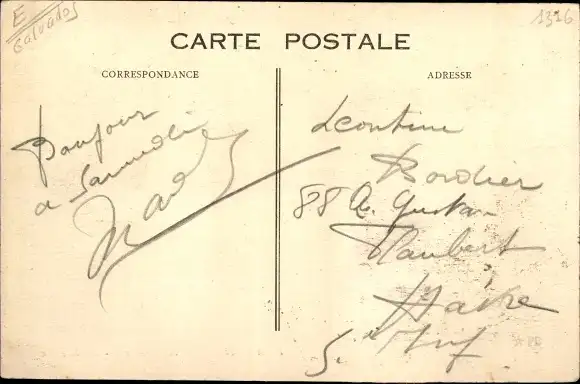 E
Calvados
1326
CARTE POSTALE
CORRESPONDANCE
ADRESSE
Bonjour
a Samedi
Leontine
Bordier
88 R. Gustave
Flaubert
Havre
S. Inf